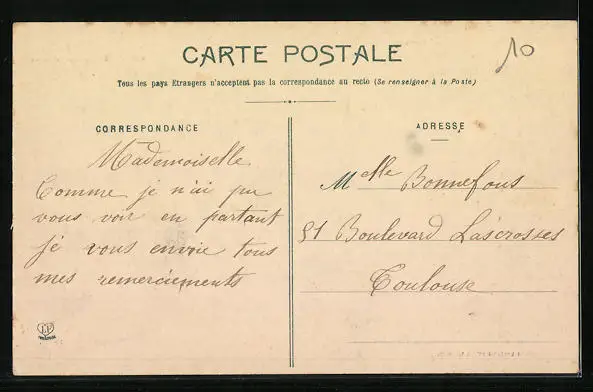 CARTE POSTALE
10
Tous les pays Etrangers n'acceptent pas la correspondance au recto (Se renseigner à la Poste)
CORRESPONDANCE
Mademoiselle
Comme je n'ai pu
vous voir en partant
je vous envoie tous
mes remerciements
ADRESSE
Melle Bonnefous
51 Boulevard Lascrosses
Toulouse